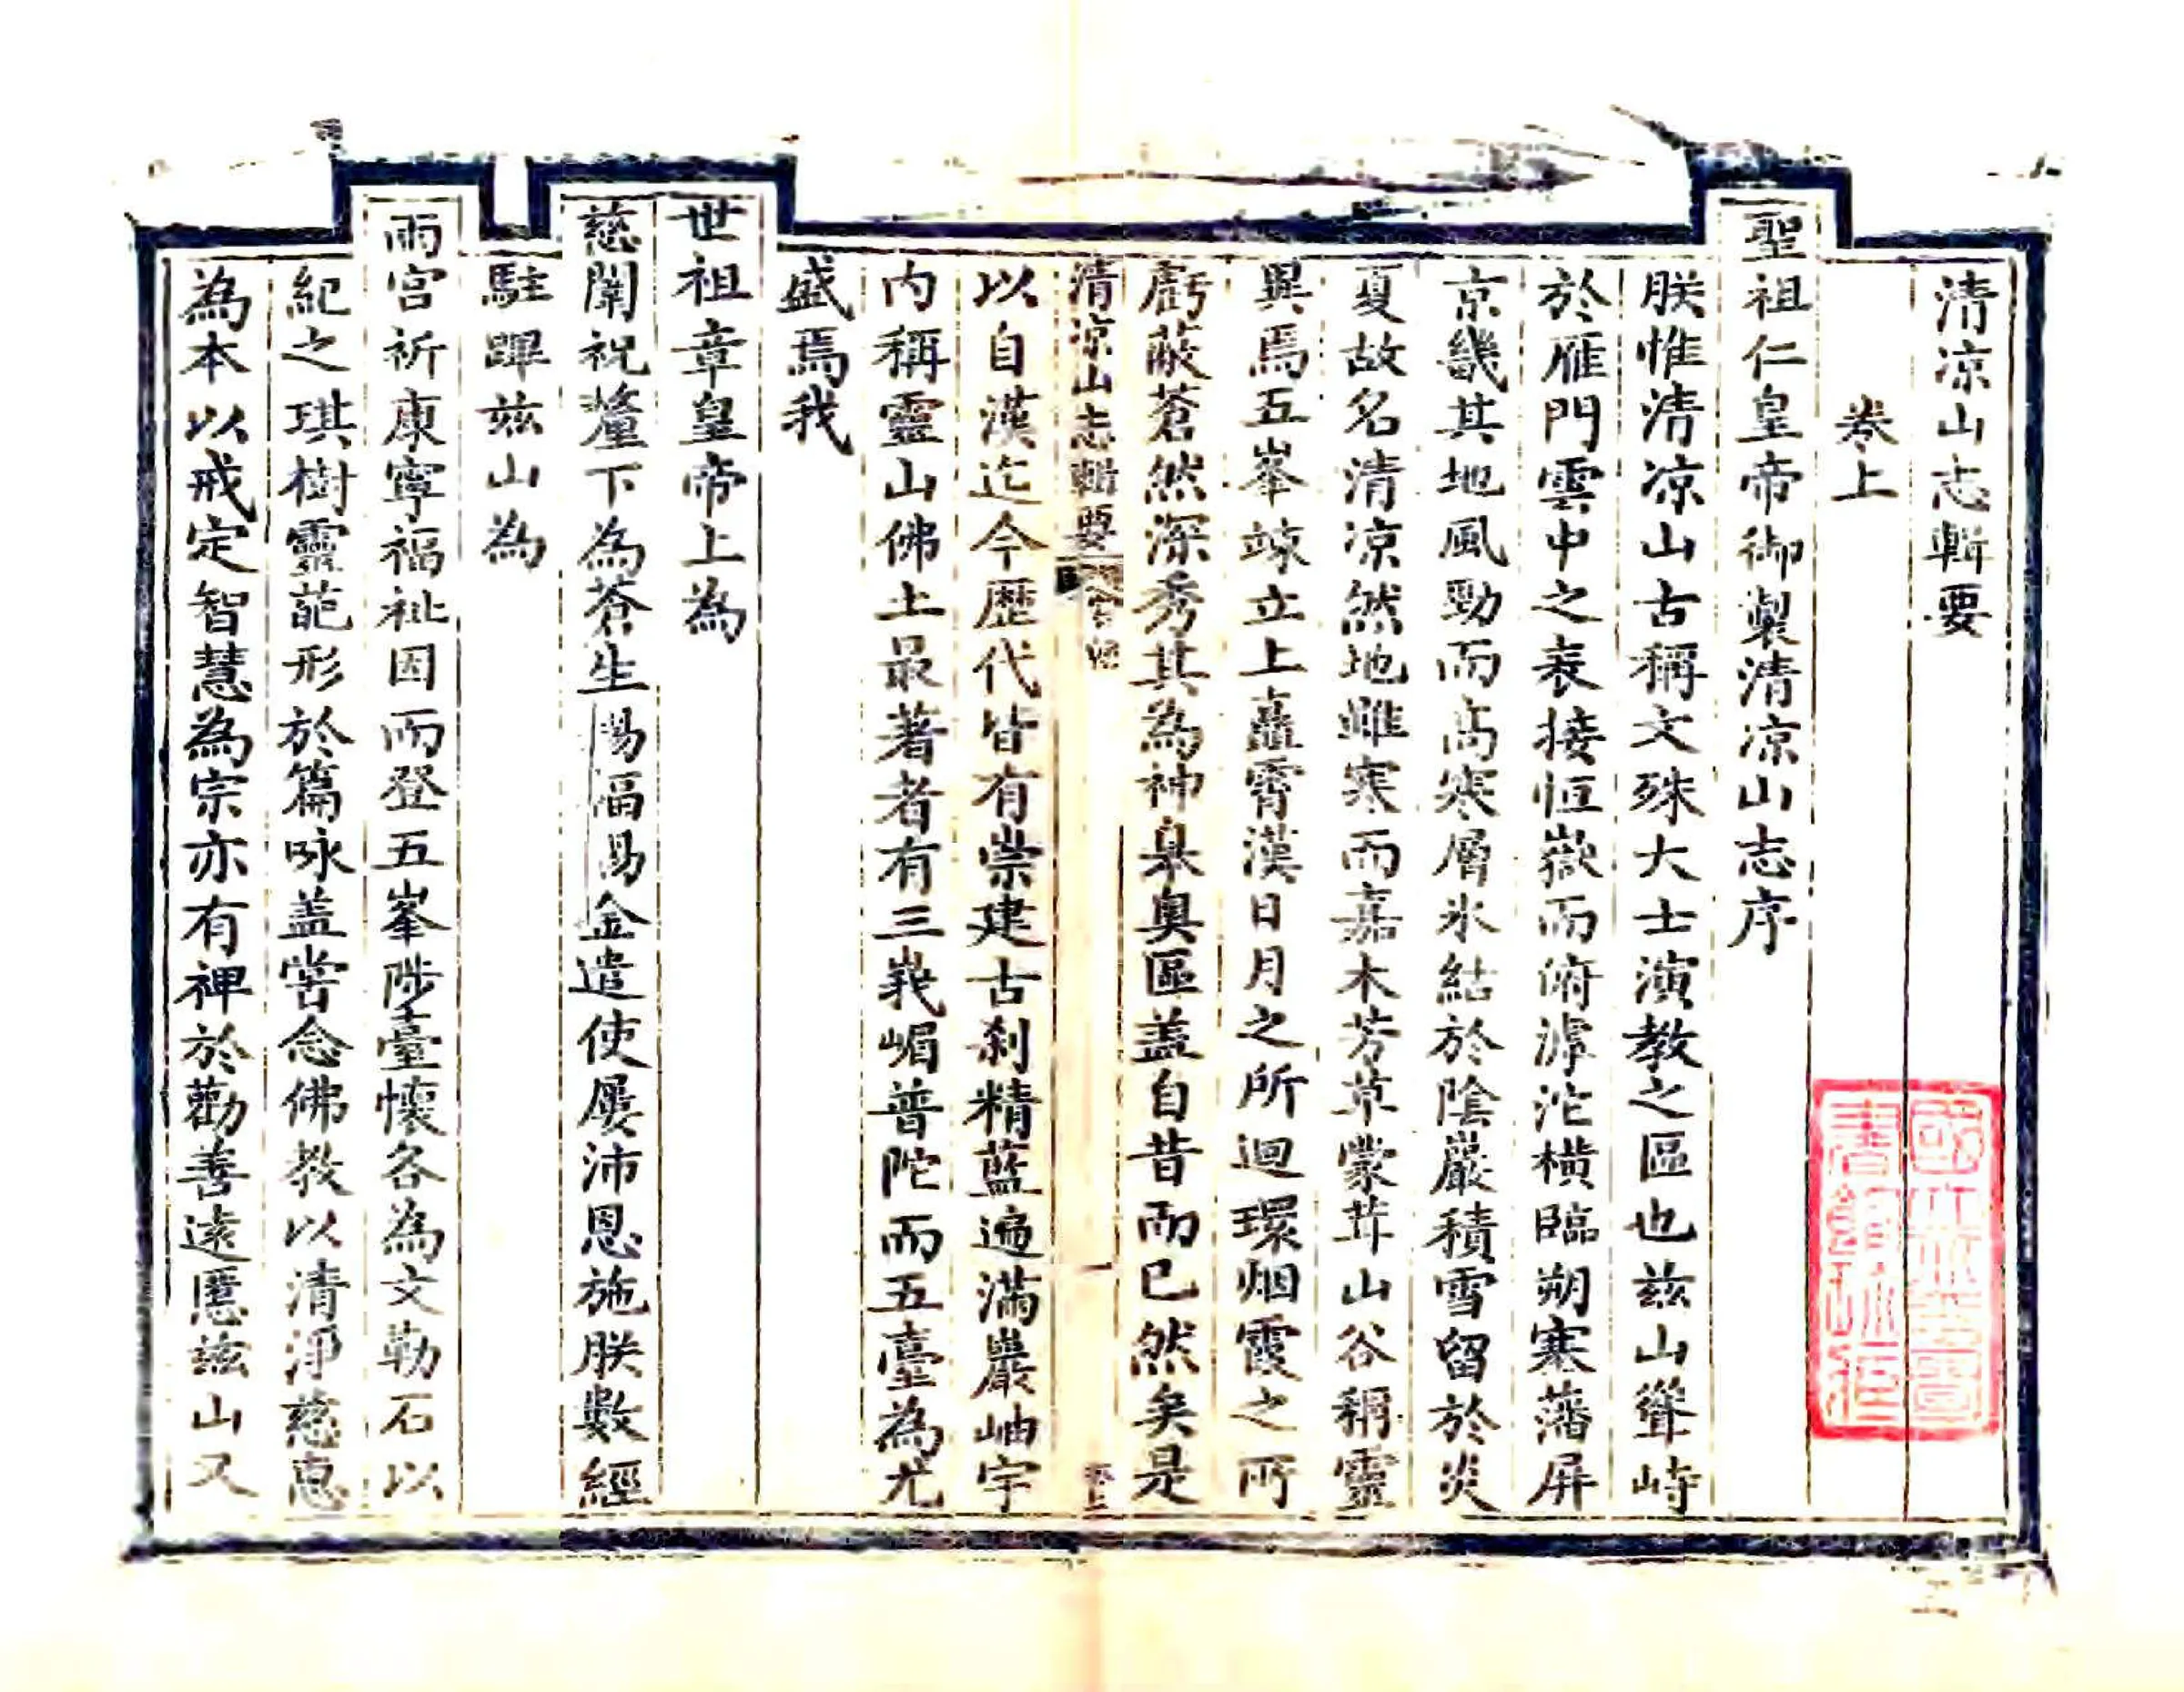 清涼山志輯要
卷上
聖祖仁皇帝御製清涼山志序
朕惟清涼山古稱文殊大士演教之區也茲山聳峙
於雁門雲中之表接恒嶽而俯滹沱橫臨朔塞藩屏
京畿其地風勁而高寒層氷結於陰巖積雪留於炎
夏故名清涼然地雖寒而嘉木芳草蒙茸山谷稱靈
異焉五峯竦立上矗霄漢日月之所迴環烟霞之所
虧蔽蒼然深秀其為神皋奧區蓋自昔而已然矣是
清涼山志輯要
一
以自漢迄今歷代皆有崇建古剎精藍遍滿巖岫宇
内稱靈山佛土最著者有三峩嵋普陀而五臺為尤
盛焉我
世祖章皇帝上為
慈闈祝釐下為蒼生錫福昜金遣使屢沛恩施朕數經
駐蹕茲山為
兩宮祈康寧福祉因而登五峯陟臺懷各為文勒石以
紀之琪樹靈葩形於篇咏蓋嘗念佛教以清淨慈恵
為本以戒定智慧為宗亦有裨於勸善遠慝茲山又
國立北平圖
書館珍藏